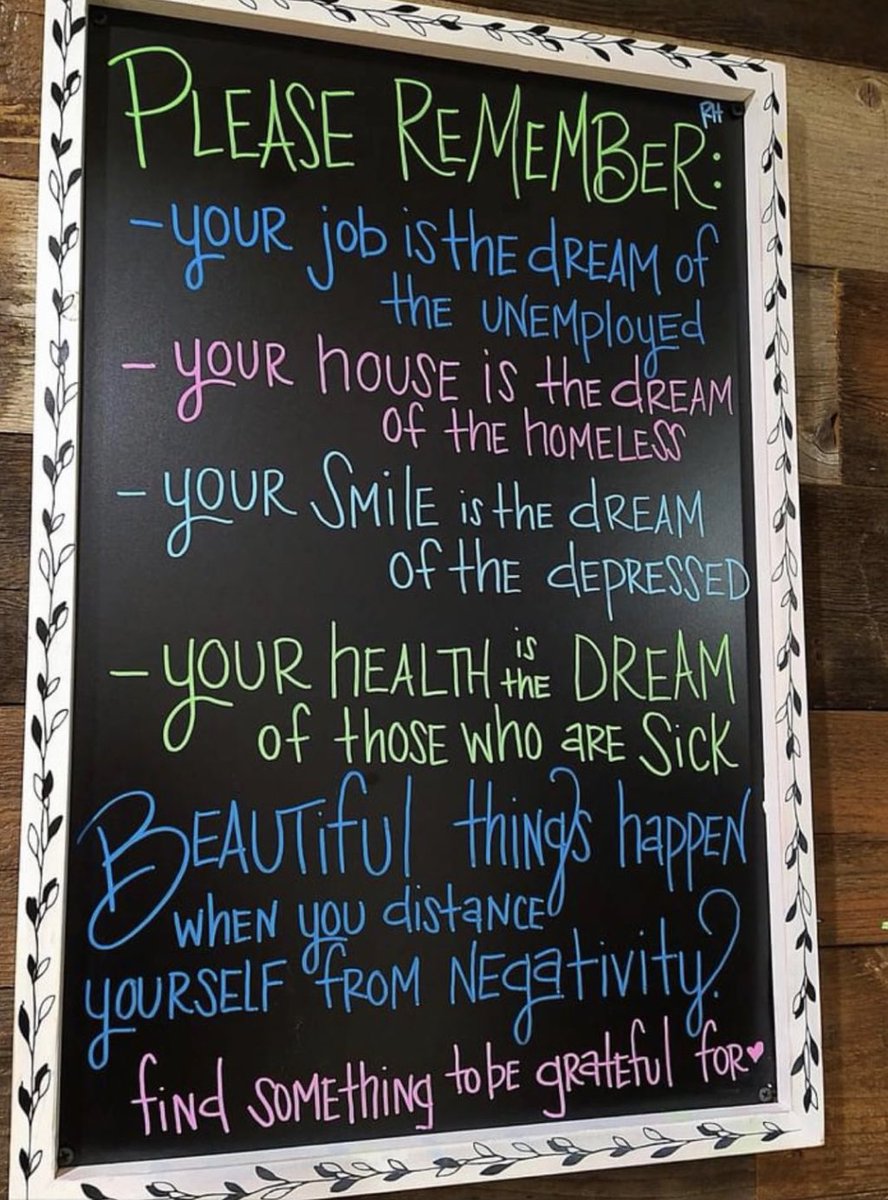 PLEASE REMEMBER:
RH
- YOUR job is the dREAM of
the UNEMployed
- YOUR hoUSE is the dREAM
of the hoMELESS
- YOUR SMilE is the dREAM
of the dEPRESSED
- YOUR hEALTH is the DREAM
of thoSE who aRE Sick
BEAUTifUl things happEN
whEN you distaNCE
YOURSELF fROM NEgativity?
find soMEthing to bE gRatEful foR♥